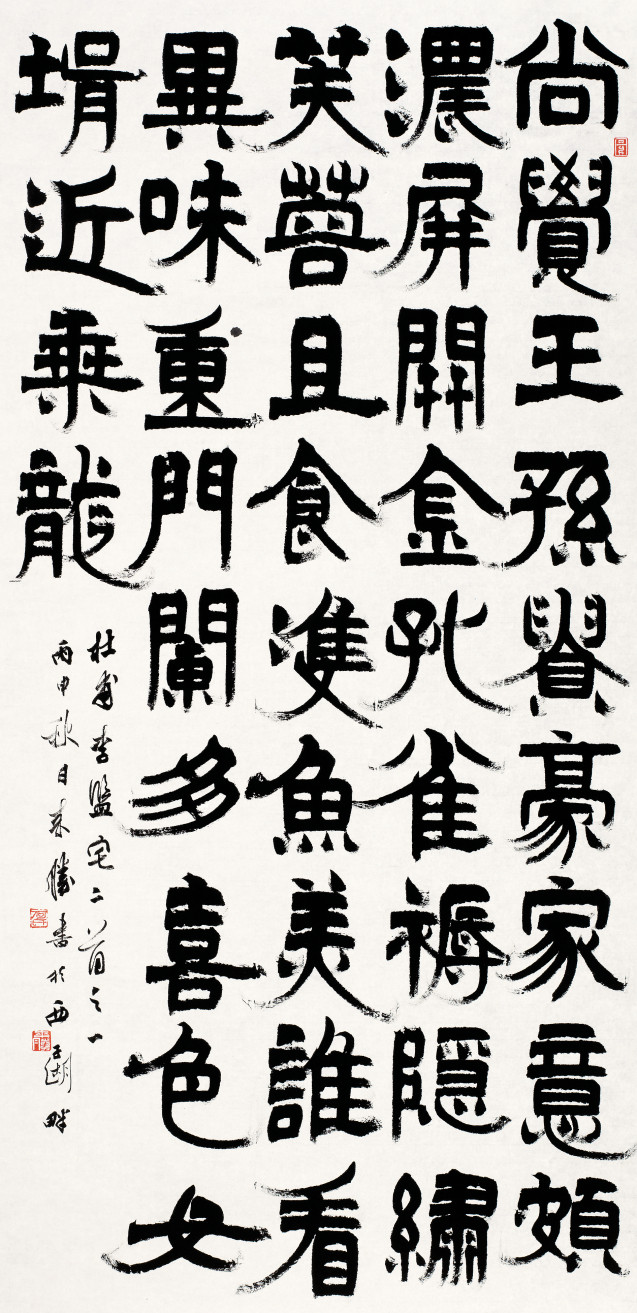 尚覺王孫貴豪家意頗
濃屏開金孔雀褥隱繡
芙蓉且食雙魚美誰看
異味重門闌多喜色女
壻近乘龍
杜甫李監宅二首之一
丙申秋日勝書於西子湖畔